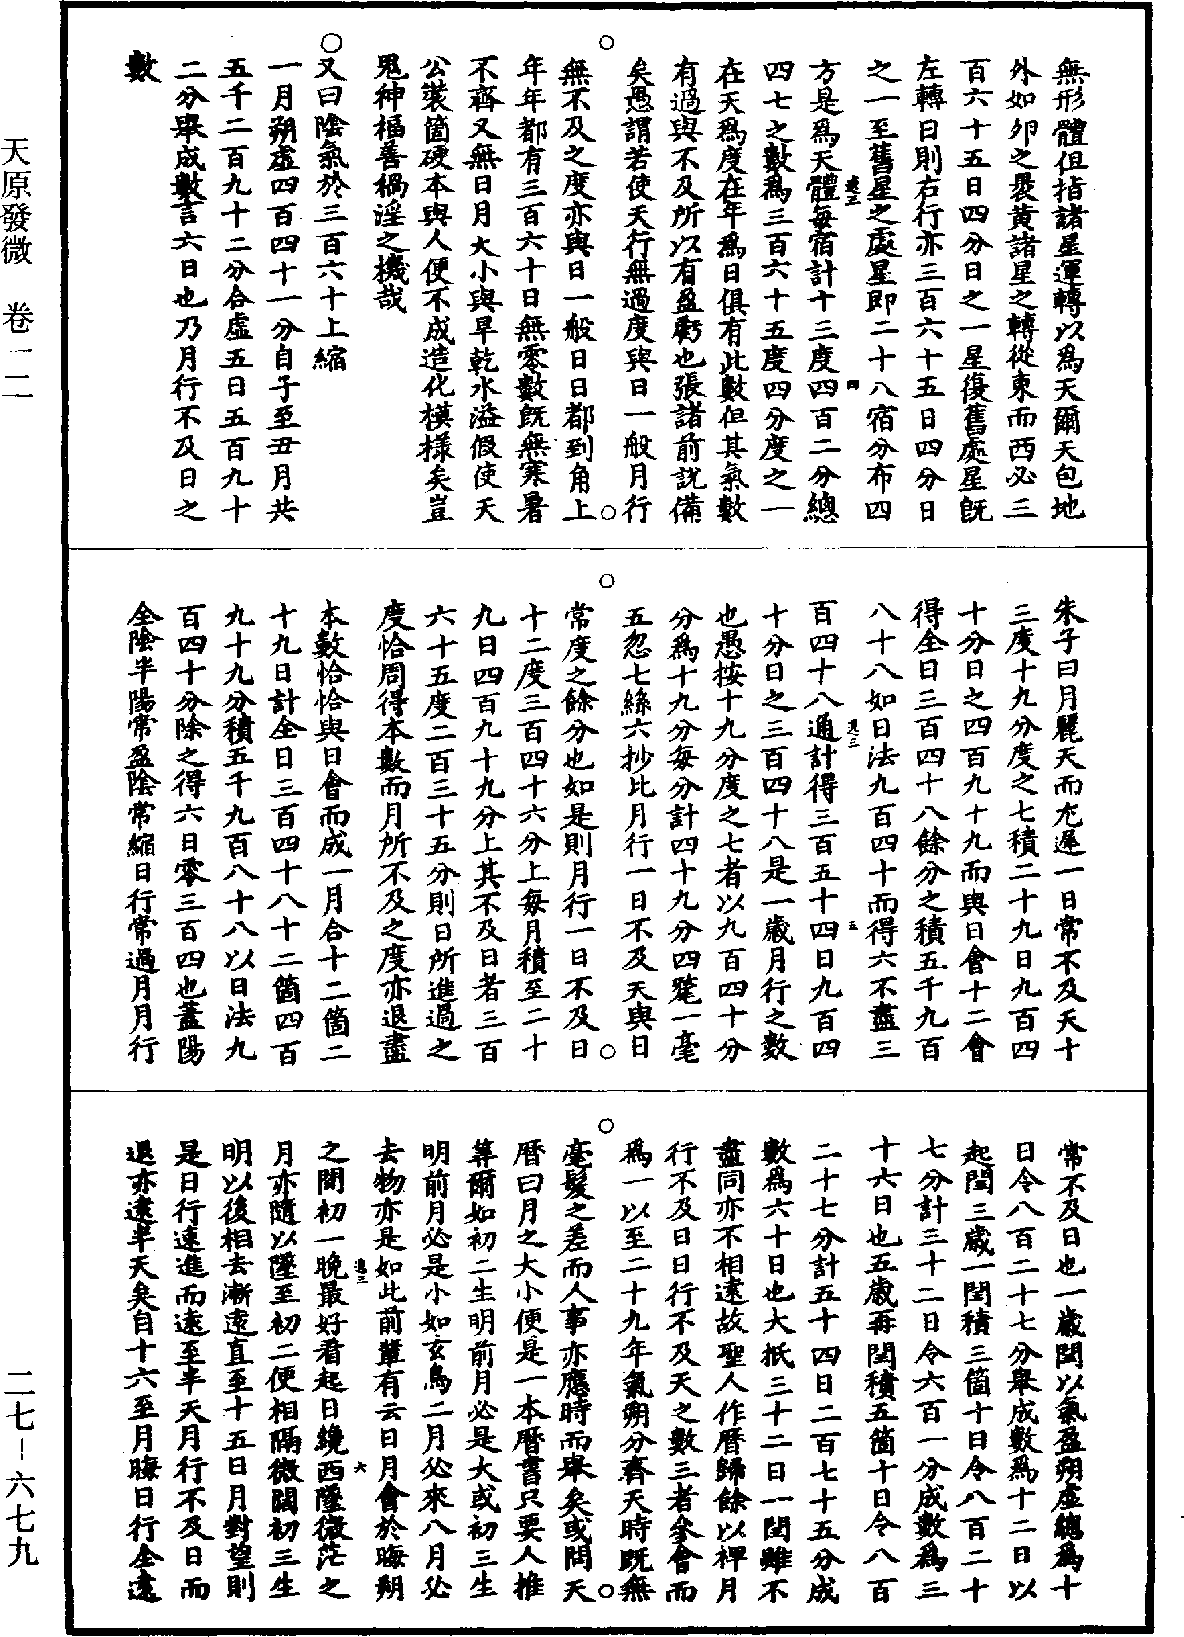 無形體但指諸星運轉以爲天爾天包地
外如卵之褁黄諸星之轉從東而西必三
百六十五日四分日之一星復舊處星既
左轉日則右行亦三百六十五日四分日
之一至舊星之處星即二十八宿分布四
方是爲天體每宿計十三度四百二分總
四七之數爲三百六十五度四分度之一
在天爲度在年爲日俱有此數但其氣數
有過與不及所以有盈虧也張諸前說備
矣愚謂若使天行無過度與日一般月行
無不及之度亦與日一般日日都到角上
年年都有三百六十日無零數既無寒暑
不齊又無日月大小與旱乾水溢假使天
公裝箇硬本與人便不成造化模様矣豈
鬼神福善禍淫之機哉
○又曰陰氣於三百六十上縮
一月朔虛四百四十一分自子至丑月共
五千二百九十二分合虛五日五百九十
二分舉成數言六日也乃月行不及日之
數
朱子曰月麗天而尤遲一日常不及天十
三度十九分度之七積二十九日九百四
十分日之四百九十九而與日會十二會
得全日三百四十八餘分之積五千九百
八十八如日法九百四十而得六不盡三
百四十八通計得三百五十四日九百四
十分日之三百四十八是一歲月行之數
也愚按十九分度之七者以九百四十分
分爲十九分每分計四十九分四氂一毫
五忽七絲六抄比月行一日不及天與日
常度之餘分也如是則月行一日不及日
十二度三百四十六分上每月積至二十
九日四百九十九分上其不及日者三百
六十五度二百三十五分則日所進過之
度恰周得本數而月所不及之度亦退盡
本數恰恰與日會而成一月合十二箇二
十九日計全日三百四十八十二箇四百
九十九分積五千九百八十八以日法九
百四十分除之得六日零三百四也盡陽
全陰半陽常盈陰常縮日行常過月月行
常不及日也一歲閏以氣盈朔虛總爲十
日令八百二十七分舉成數爲十二日以
起閏三歲一閏積三箇十日令八百二十
七分計三十二日令六百一分成數爲三
十六日也五歲再閏積五箇十日令八百
二十七分計五十四日二百七十五分成
數爲六十日也大抵三十二日一閏雖不
盡同亦不相遠故聖人作曆歸餘以裨月
行不及日日行不及天之數三者參會而
爲一以至二十九年氣朔分齊天時既無
毫髮之差而人事亦應時而舉矣或問天
曆曰月之大小便是一本曆書只要人推
筭爾如初二生明前月必是大或初三生
明前月必是小如玄鳥二月必來八月必
去物亦是如此前軰有云日月會於晦朔
之間初一晚最好看起日纔西墜微茫之
月亦隨以墜至初二便相隔微闊初三生
明以後相去漸遠直至十五日月對望則
是日行速進而遠至半天月行不及日而
退亦遠半天矣自十六至月晦日行全遠
天原發微 卷二二
二七-六七九
选三 四
选三 五
选三 六